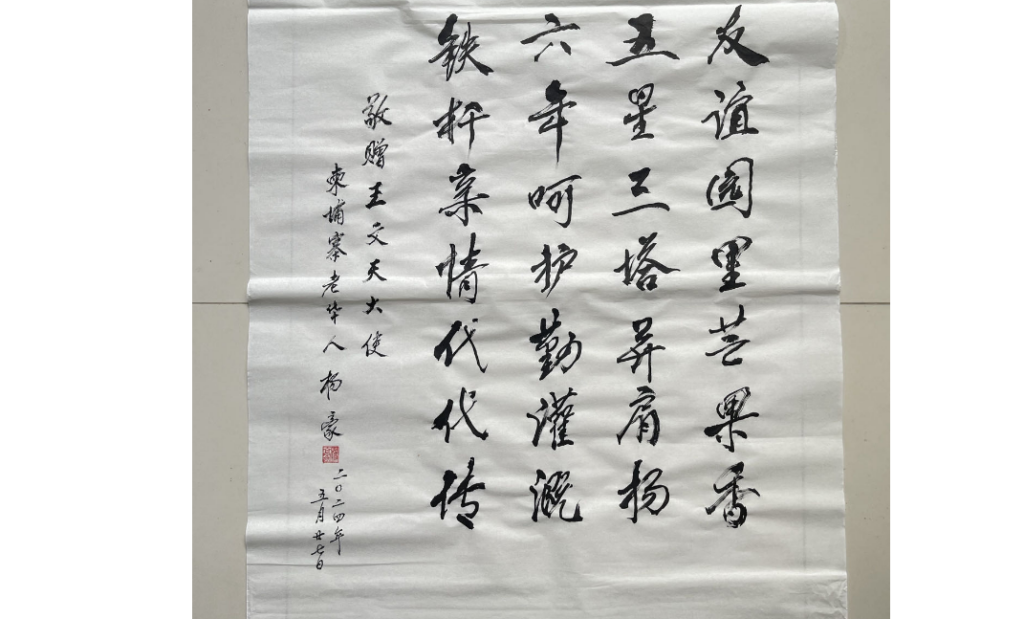 友谊园里芒果香
五星三塔并肩杨
六年呵护勤灌溉
铁杆亲情代代传
敬赠王文天大使
柬埔寨老华人 杨豪
二〇二四年
五月廿七日